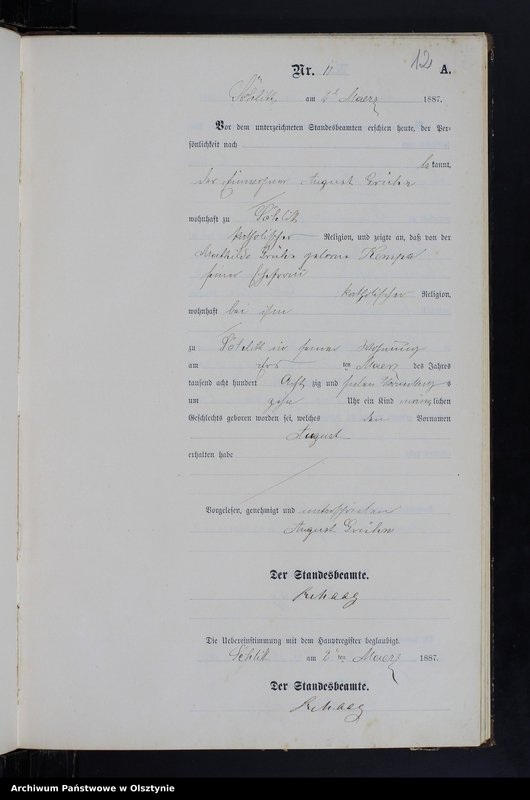 12
Nr. 11 A.
am 2 Maerz 1887.
Vor dem unterzeichneten Standesbeamten erschien heute, der Per-
sönlichkeit nach
be kannt,
der Einwohner August Grühn
wohnhaft zu
katholischer Religion, und zeigte an, daß von der
Mathilde Grühn geborne Kempa
seiner Ehefrau
katholischer Religion,
wohnhaft bei ihm
zu in seiner Wohnung
am ten Maerz des Jahres
tausend acht hundert Acht zig und sieben Vormittag s
um zehn Uhr ein Kind männ lichen
Geschlechts geboren worden sei, welches den Vornamen
August
erhalten habe
Vorgelesen, genehmigt und unterschrieben
August Grühn
Der Standesbeamte.
Rehaag
Die Uebereinstimmung mit dem Hauptregister beglaubigt.
am 2 ten Maerz 1887.
Der Standesbeamte.
Rehaag
Archiwum Państwowe w Olsztynie